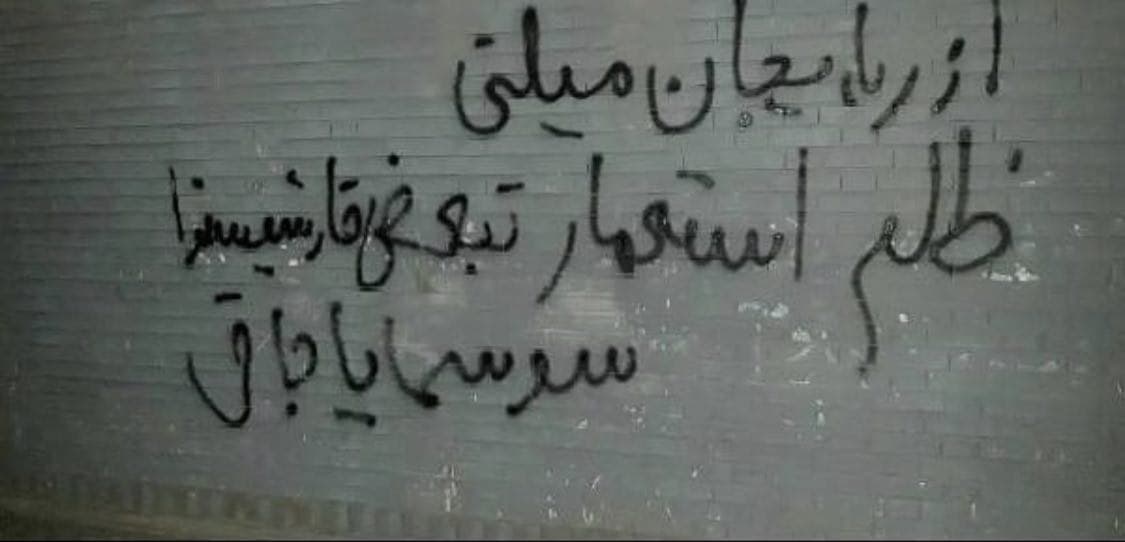 ازربایجان میلتی
ظلم استعمار تبعض قارشیسیندا
سوسمایاجاق